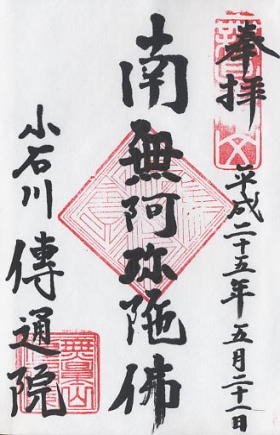 奉拝
平成二十五年五月二十一日
南無阿弥陀佛
小石川
傳通院
無量山